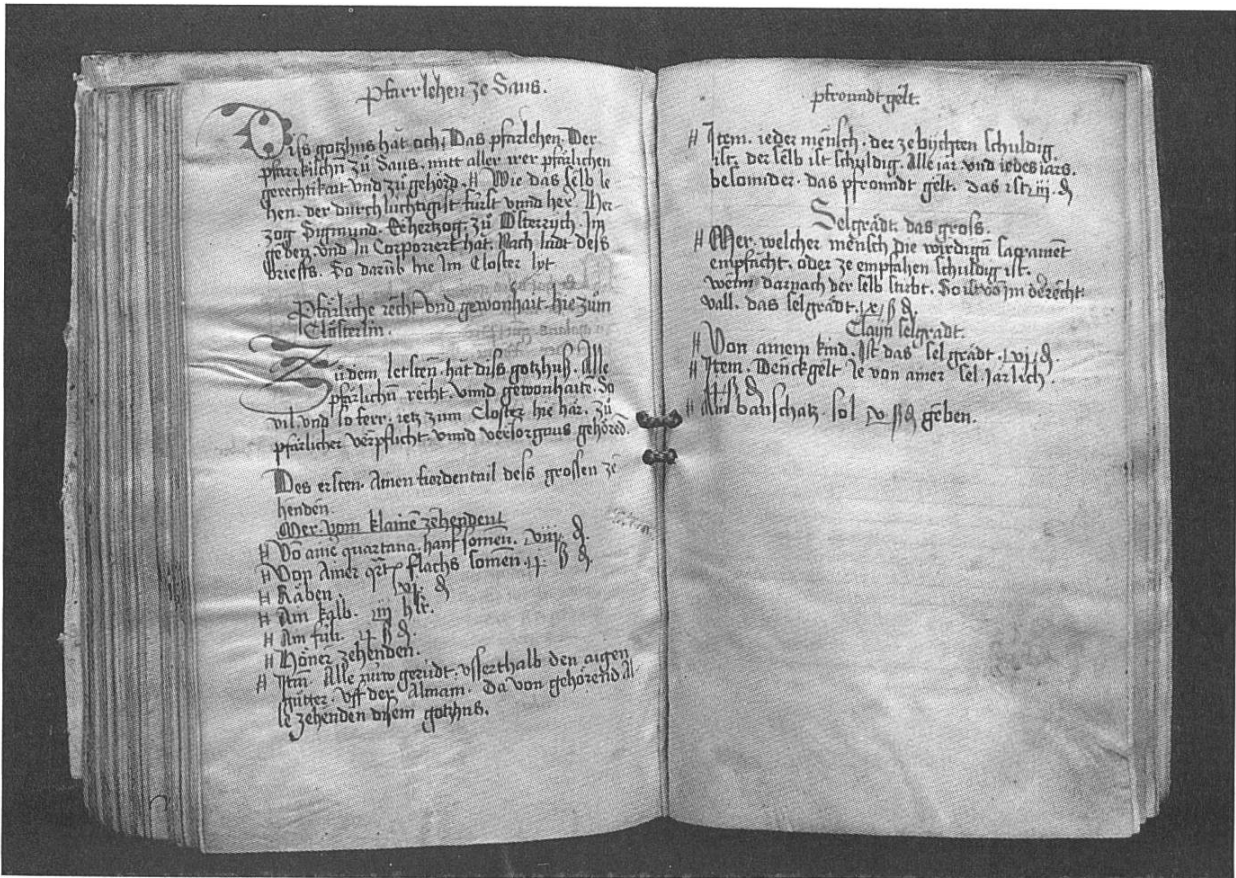 Pfarrlehen ze Sans.
Diss gotzhus hat och. Das pfarlehen. Der
pfarrkilchn zů Sans. mitt aller irer pfärlichen
gerechtikait vnd zů gehörd. Wie das selb le
hen. der durchluchtigist fürst vnnd her. Her-
zog Sigmund. Ertzherzog. zů Osterrych. Im
geben. vnd In Corporiert hat. Nach lüdt dess
brieffs. So darüb hie Im Closter lyt
Pfärliche recht vnd gewonhait. hie zum
Clösterlin.
Zů dem letsten. hat diss gotzhuss. Alle
pfärlichn recht. vnnd gewonhaite. So
vil. vnd so ferr. ietz zum Closter hie här. zů
pfärlicher verpflicht. vnnd versorgnus gehöred.
Des ersten. Amen fiordentail dess grossen ze
henden.
Mer. vom klaine zehendent
Vō ame quartana. hanf somen. viij. ₰.
Von Amer qrt flachs somen. ij. ß ₰
Räben. vj. ₰
Am kalb. iiij hlr.
Am füli. ij ß ₰.
Höner zehenden.
Itm. Alle nüw gerüdt. vsserthalb den aigen
gütter. vff der Almain. Da von gehörend al
le zehenden disem gotzhus.
pfrondt gelt.
Item. ieder mensch. der ze bychten schuldig
ist. der selb ist schuldig. Alle iar. vnd iedes iars.
besonnder. das pfronndt gelt. das ist iij. ₰
Selgrädt. das gross.
Mer. welcher mensch die wirdign sacrament
empfacht. oder ze empfahen schuldig ist.
wenn darnach der selb stirbt. So ist vō jm de recht
vall. das selgrädt. ix ß ₰.
Clayn selgrädt.
Von amem kind. Ist das sel grädt. vj. ₰.
Item. Denckgelt ie von amer sel Jarlich.
j ₰
Ain banschatz. sol v ß ₰ geben.